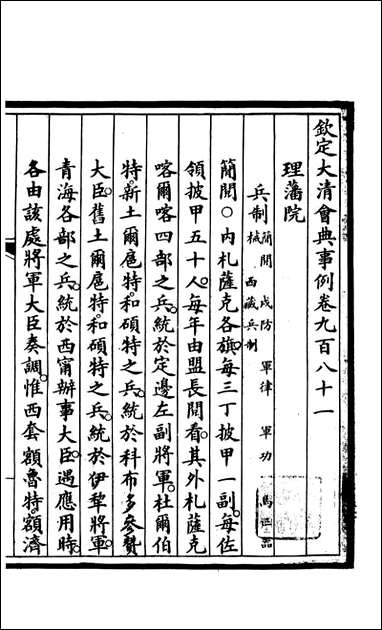 欽定大清會典事例卷九百八十一
理藩院
兵制 簡閱 戍防 軍律 軍功 馬匹器械 西藏兵制
簡閱○內札薩克各旗每三丁披甲一副每佐
領披甲五十人每年由盟長閱看其外札薩克
喀爾喀四部之兵統於定邊左副將軍杜爾伯
特新土爾扈特和碩特之兵統於科布多參贊
大臣舊土爾扈特和碩特之兵統於伊犂將軍
青海各部之兵統於西甯辦事大臣遇應用時
各由該處將軍大臣奏調惟西套額魯特額濟